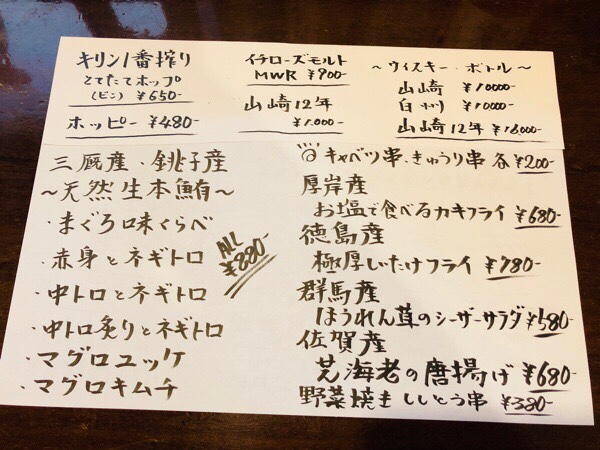 キリン1番搾り
とてたてホップ
(ビン) ¥650-
ホッピー ¥480-
イチローズモルト
MWR ¥900-
山崎12年
¥1.000-
〜ウイスキー・ボトル〜
山崎 ¥10000-
白州 ¥10000-
山崎12年 ¥16000-
三厩産、銚子産
〜天然生本鮪〜
・まぐろ味くらべ
・赤身とネギトロ
・中トロとネギトロ
・中トロ炙りとネギトロ
・マグロユッケ
・マグロキムチ
ALL
¥880-
キャベツ串、きゅうり串 各¥200-
厚岸産
お塩で食べるカキフライ ¥680-
徳島産
極厚しいたけフライ ¥780-
群馬産
ほうれん草のシーザーサラダ ¥580-
佐賀産
芝海老の唐揚げ ¥680-
野菜焼き ししとう串 ¥380-